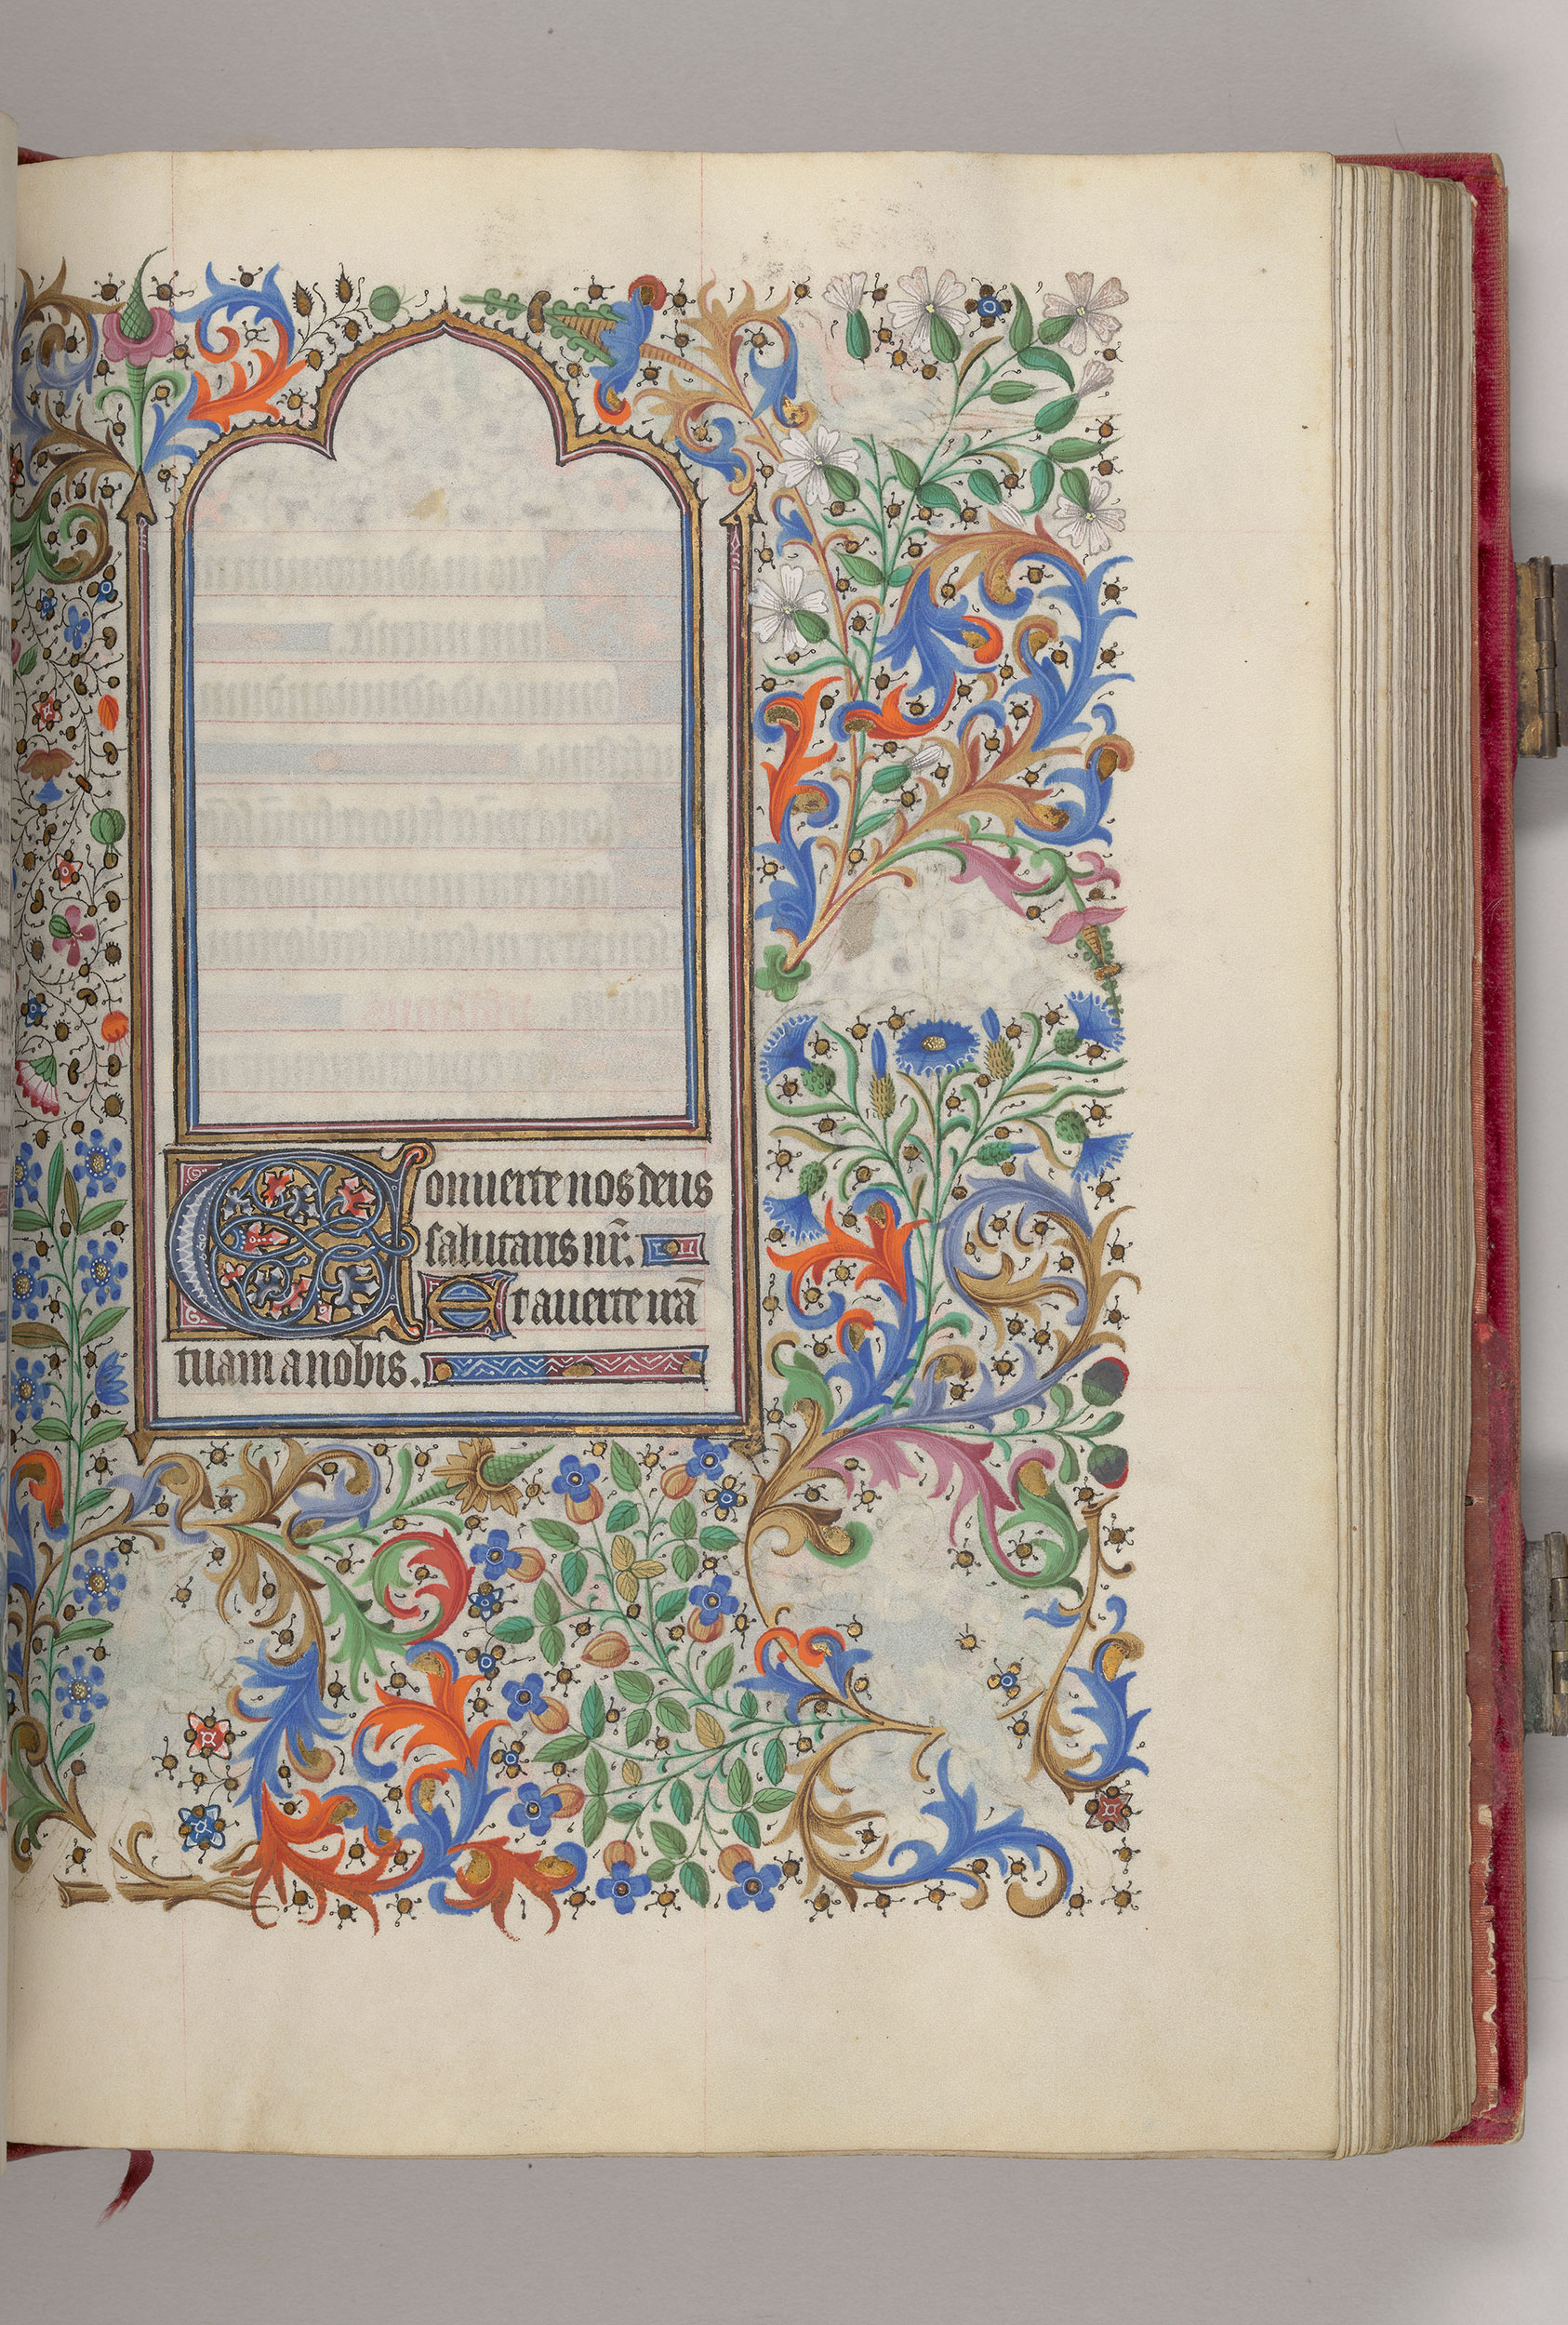 Conuerte nos deus
salutaris nr̄.
Et auerte irā
tuam a nobis.